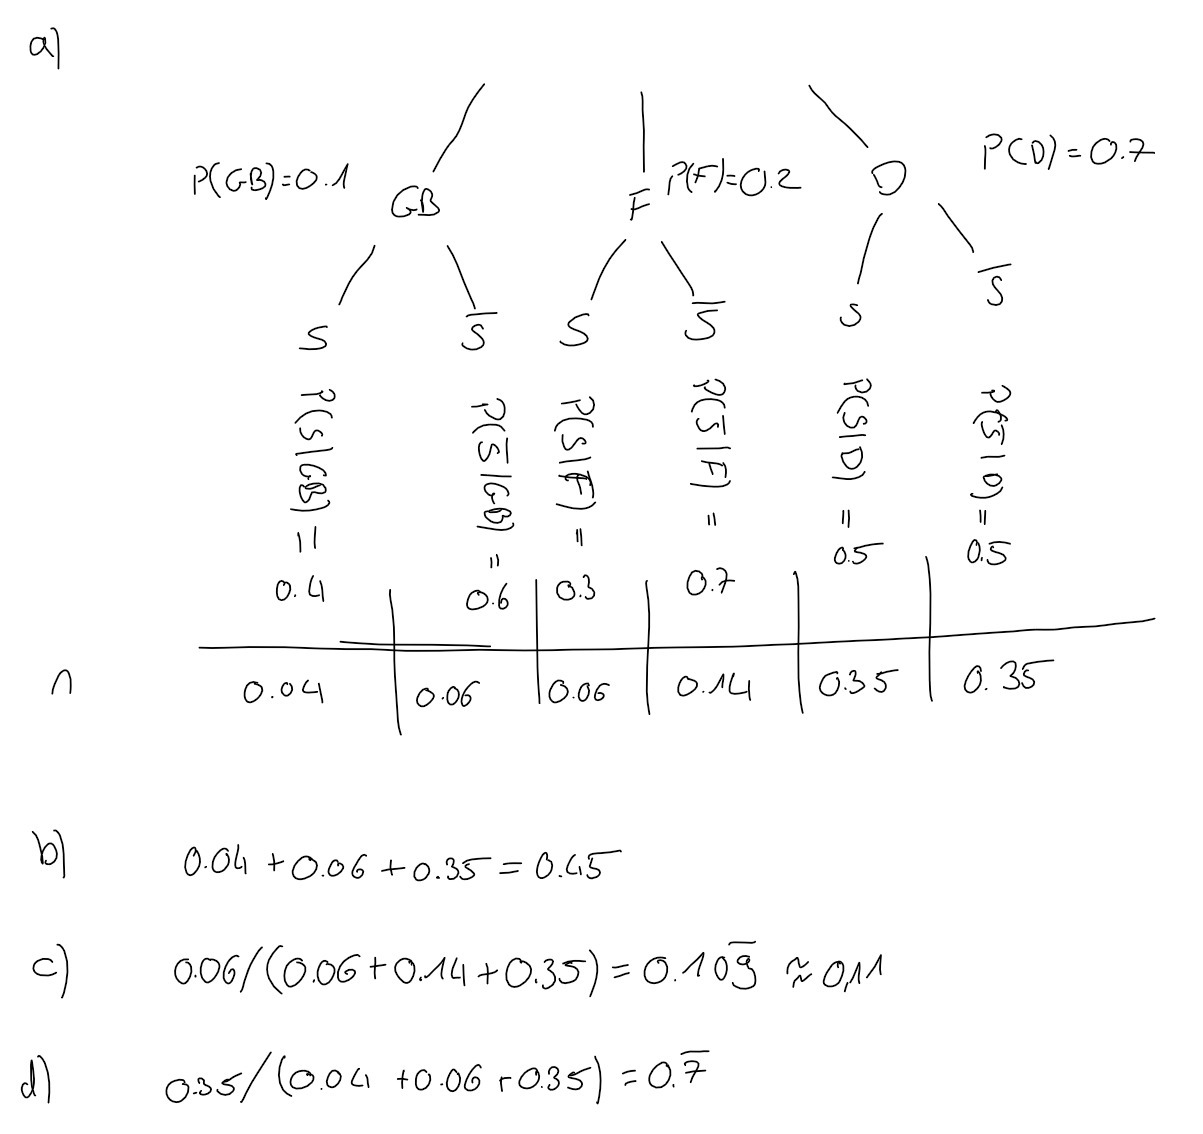 a)
P(GB)=0.1 P(F)=0.2 P(D)=0.7
GB F D
S S̅ S S̅ S S̅
P(S|GB) = 0.4
P(S̅|GB) = 0.6
P(S|F) = 0.3
P(S̅|F) = 0.7
P(S|D) = 0.5
P(S̅|D) = 0.5
∩ 0.04 0.06 0.06 0.14 0.35 0.35
b) 0.04 + 0.06 + 0.35 = 0.45
c) 0.06/(0.06+0.14+0.35) = 0.109̅ ≈ 0,11
d) 0.35/(0.04 +0.06 +0.35) = 0.7̅